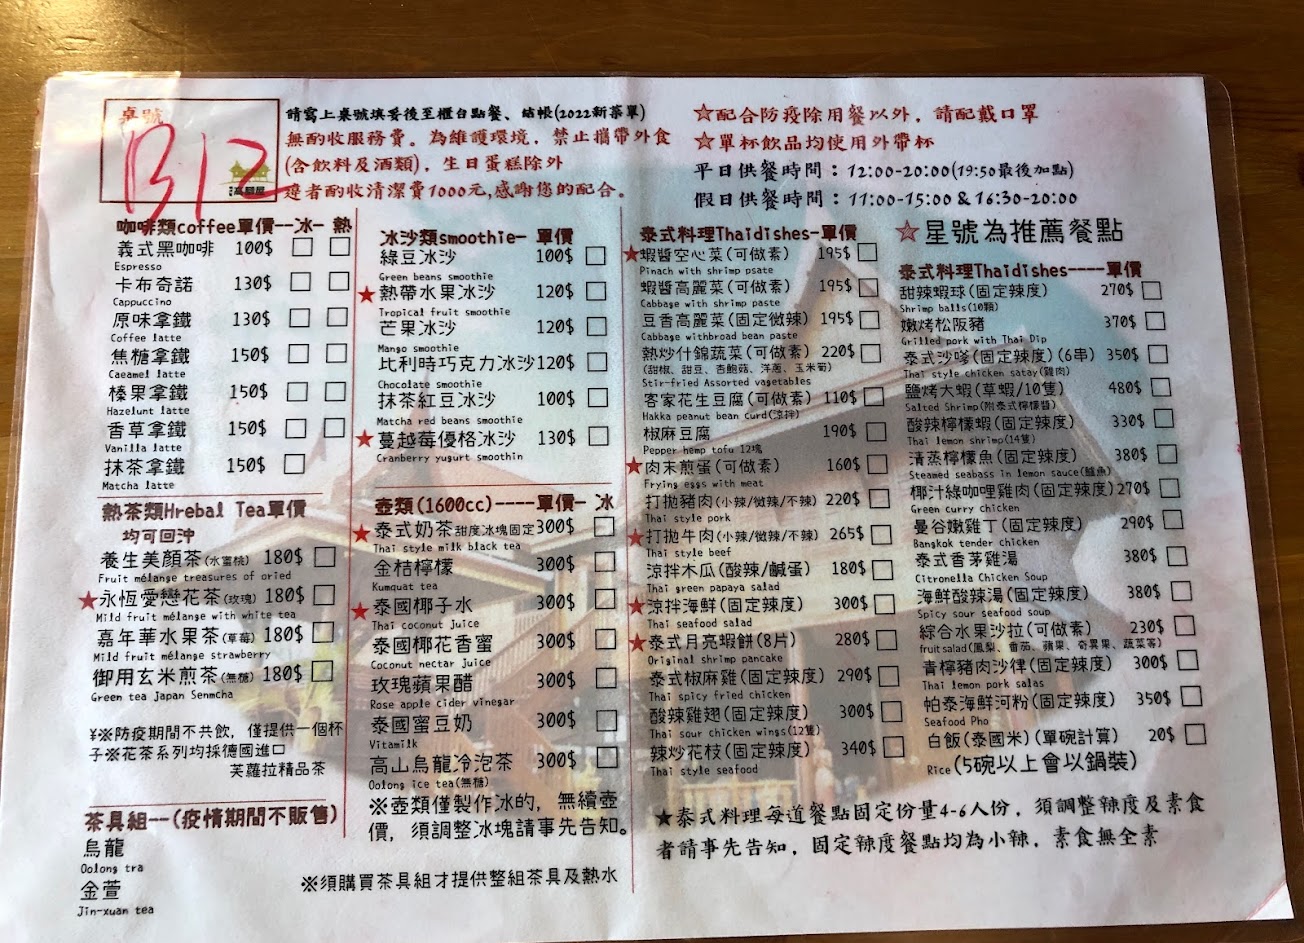 桌號
B12
高腳屋
請寫上桌號填妥後至櫃台點餐、結帳(2022新菜單)
無酌收服務費。為維護環境,禁止攜帶外食
(含飲料及酒類),生日蛋糕除外
違者酌收清潔費1000元,感謝您的配合。
☆配合防疫除用餐以外,請配戴口罩
☆單杯飲品均使用外帶杯
平日供餐時間:12:00-20:00(19:50最後加點)
假日供餐時間:11:00-15:00&16:30-20:00
咖啡類coffee單價--冰- 熱
義式黑咖啡 100$ □ □
Espresso
卡布奇諾 130$ □ □
Cappuccino
原味拿鐵 130$ □ □
Coffee latte
焦糖拿鐵 150$ □ □
Caeamel latte
榛果拿鐵 150$ □ □
Hazelunt latte
香草拿鐵 150$ □ □
Vanilla latte
抹茶拿鐵 150$ □
Matcha latte
熱茶類Hrebal Tea單價
均可回沖
養生美顏茶(水蜜桃) 180$ □
Fruit mélange treasures of oried
★永恆愛戀花茶(玫瑰) 180$ □
Mild fruit mélange with white tea
嘉年華水果茶(草莓) 180$ □
Mild fruit mélange strawberry
御用玄米煎茶(無糖) 180$ □
Green tea Japan Senmcha
¥※防疫期間不共飲,僅提供一個杯
子※花茶系列均採德國進口
芙蘿拉精品茶
茶具組--(疫情期間不販售)
烏龍
Oolong tra
金萱
Jin-xuan tea
冰沙類smoothie- 單價
綠豆冰沙 100$ □
Green beans smoothie
★熱帶水果冰沙 120$ □
Tropical fruit smoothie
芒果冰沙 120$ □
Mango smoothie
比利時巧克力冰沙120$ □
Chocolate smoothie
抹茶紅豆冰沙 100$ □
Matcha red beans smoothie
★蔓越莓優格冰沙 130$ □
Cranberry yugurt smoothin
壺類(1600cc)----單價- 冰
★泰式奶茶甜度冰塊固定300$ □
Thai style milk black tea
金桔檸檬 300$ □
Kumquat tea
★泰國椰子水 300$ □
Thai coconut juice
泰國椰花香蜜 300$ □
Coconut nectar juice
玫瑰蘋果醋 300$ □
Rose apple cider vinegar
泰國蜜豆奶 300$ □
Vitamilk
高山烏龍冷泡茶 300$ □
Oolong ice tea(無糖)
※壺類僅製作冰的,無續壺
價,須調整冰塊請事先告知。
※須購買茶具組才提供整組茶具及熱水
泰式料理Thaidishes-單價
★蝦醬空心菜(可做素) 195$ □
Pinach with shrimp psate
蝦醬高麗菜(可做素) 195$ □
Cabbage with shrimp paste
豆香高麗菜(固定微辣) 195$ □
Cabbage withbroad bean paste
熱炒什錦蔬菜(可做素) 220$ □
(甜椒、甜豆、杏鮑菇、洋蔥、玉米筍)
Stir-fried Assorted vagetables
客家花生豆腐(可做素) 110$ □
Hakka peanut bean curd(涼拌)
椒麻豆腐 190$ □
Pepper hemp tofu 12塊
★肉末煎蛋(可做素) 160$ □
Frying eggs with meat
打拋豬肉(小辣/微辣/不辣) 220$ □
Thai style pork
★打拋牛肉(小辣/微辣/不辣) 265$ □
Thai style beef
涼拌木瓜(酸辣/鹹蛋) 180$ □
Thai green papaya salad
★涼拌海鮮(固定辣度) 300$ □
Thai seafood salad
★泰式月亮蝦餅(8片) 280$ □
Original shrimp pancake
泰式椒麻雞(固定辣度) 290$ □
Thai spicy fried chicken
酸辣雞翅(固定辣度) 300$ □
Thai sour chicken wings(12隻)
辣炒花枝(固定辣度) 340$ □
Thai style seafood
☆星號為推薦餐點
泰式料理Thaidishes----單價
甜辣蝦球(固定辣度) 270$ □
Shrimp balls(10顆)
嫩烤松阪豬 370$ □
Grilled pork with Thai Dip
泰式沙嗲(固定辣度)(6串) 350$ □
Thai style chicken satay(雞肉)
鹽烤大蝦(草蝦/10隻) 480$ □
Salted Shrimp(附泰式檸檬醬)
酸辣檸檬蝦(固定辣度) 330$ □
Thai lemon shrimp(14隻)
清蒸檸檬魚(固定辣度) 380$ □
Steamed seabass in lemon sauce(鱸魚)
椰汁綠咖哩雞肉(固定辣度)270$ □
Green curry chicken
曼谷嫩雞丁(固定辣度) 290$ □
Bangkok tender chicken
泰式香茅雞湯 380$ □
Citronella Chicken Soup
海鮮酸辣湯(固定辣度) 380$ □
Spicy sour seafood soup
綜合水果沙拉(可做素) 230$ □
fruit salad(鳳梨、番茄、蘋果、奇異果、蔬菜等)
青檸豬肉沙律(固定辣度) 300$ □
Thai lemon pork salas
帕泰海鮮河粉(固定辣度) 350$ □
Seafood Pho
白飯(泰國米)(單碗計算) 20$ □
Rice(5碗以上會以鍋裝)
★泰式料理每道餐點固定份量4-6人份,須調整辣度及素食
者請事先告知,固定辣度餐點均為小辣,素食無全素